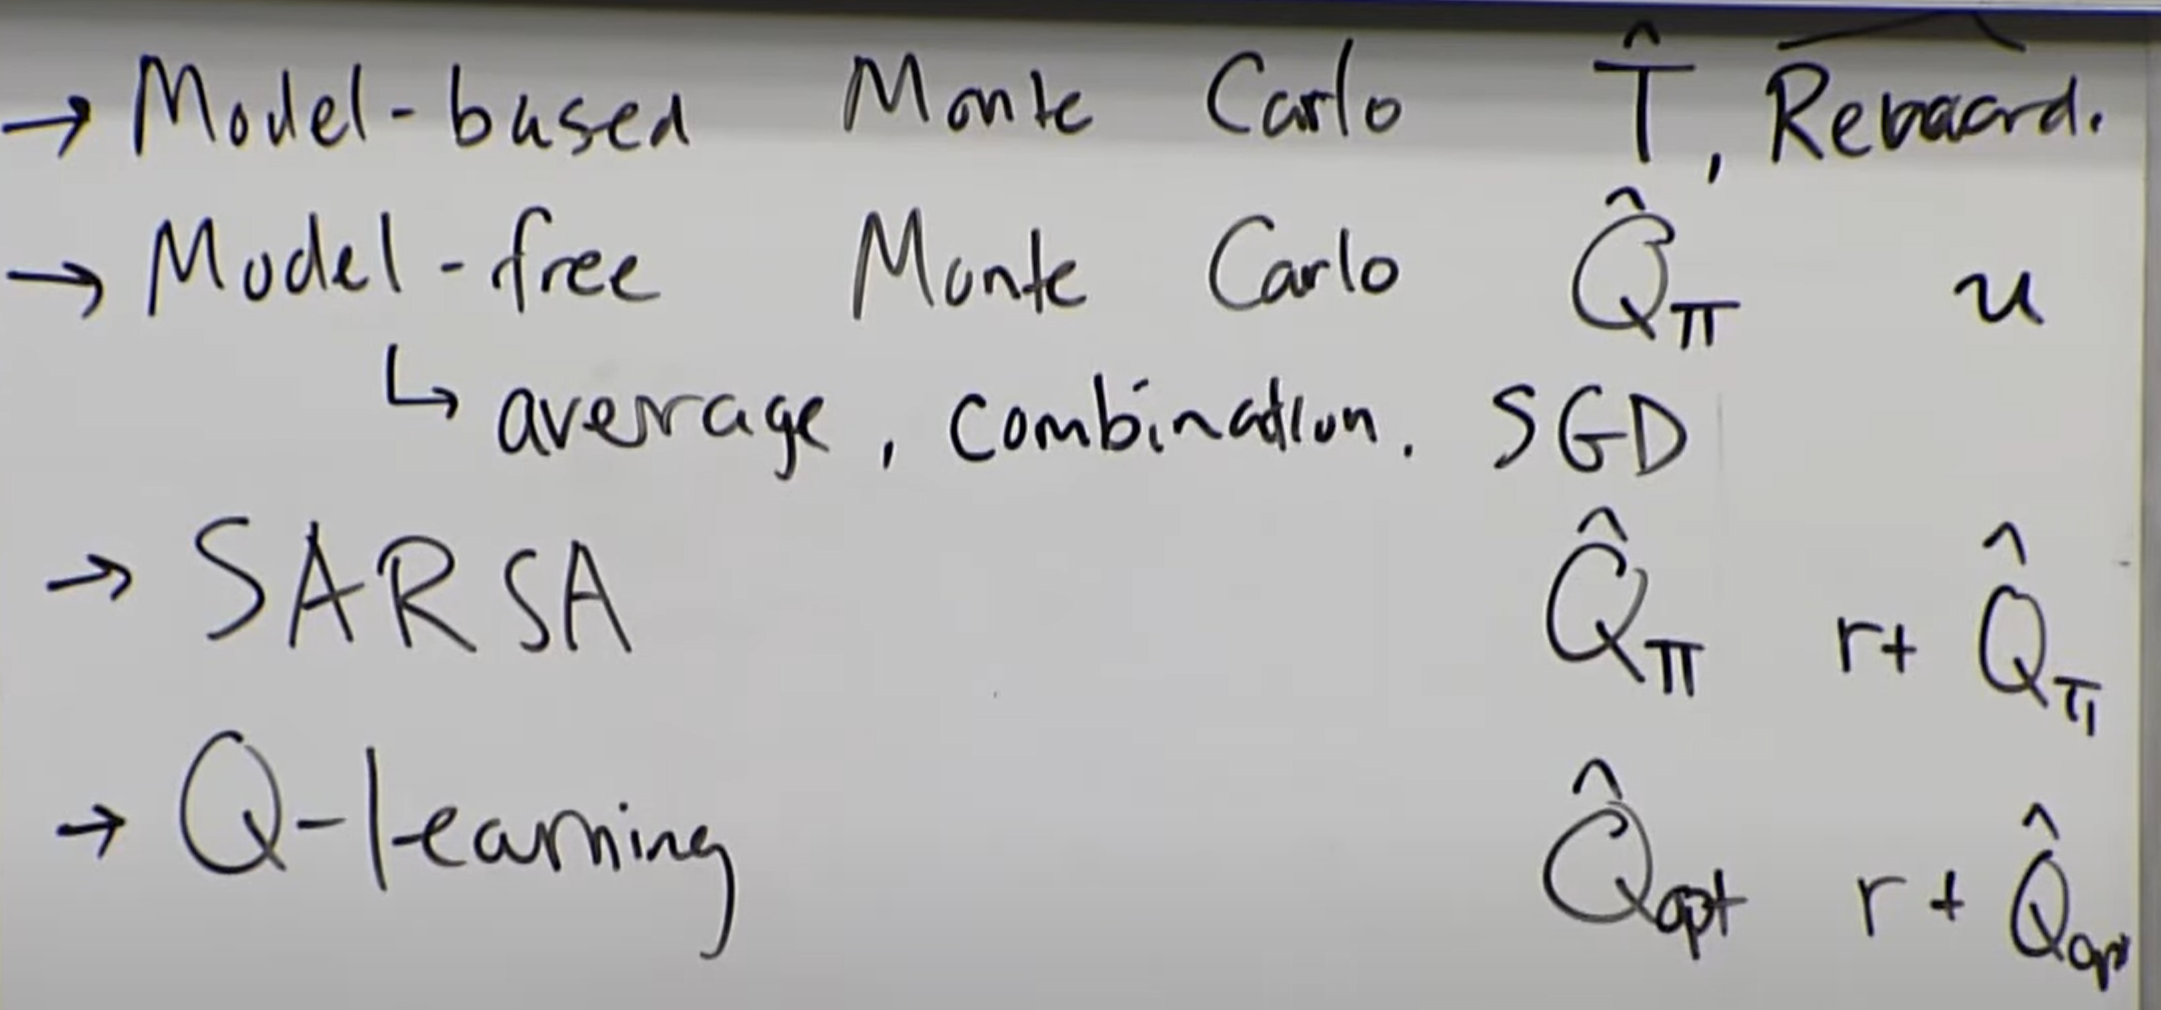 → Model-based Monte Carlo T̂, Reward.
→ Model-free Monte Carlo Q̂π u
↳ average, combination. SGD
→ SARSA Q̂π r+ Q̂π
→ Q-learning Q̂opt r + Q̂opt